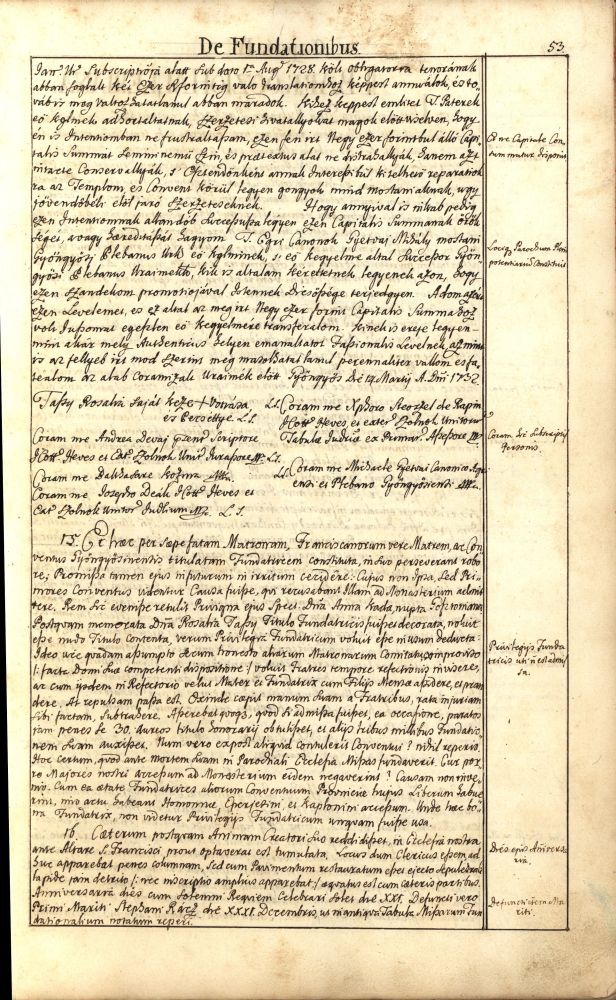 De Fundationibus.
53.
Subscriptiója alatt Sub dato 1. Aug. 1728. költ obligatoria tenorának
abban foglalt két Ezer Rforintig való
meg abban maradok. Kihez képpest említet T. Paterek
eö kglmek adhortaltatnak, Szerzetesi hivatallyokat magok elött viselven, hogy
én is Intentiomban ne frustraltassam, ezen fen irt Negy ezer forintbul álló Capi-
talis Summát semi nemü szin, és praetextus alat ne distrahallyák, hanem azt
Conservallyák, s Esztendönként annak Interessibül kitelhetö reparatiok-
ra az Templom, és Convent körül legyen gongyok mind mostaniaknak, ugy
jövendöbéli elöl járó Szerzeteseknek. Hogy annyival is inkab pedig
ezen Intentiomnak allandób Successusa legyen ezen Capitalis Summanak örök-
séges, avagy hagyom T. Egri Canonok Gyetvai Mihály mostani
Gyöngyösi Plebanus Urk eö kglminek, s eö kegyelme altal Successor Gyön-
gyösi Plebanus Uraiméknak, kik is általam kérettetnek legyenek azon, hogy
ezen szandekom promotiojával Istennek Dicsössége terjedgyen. Adom
ezen Levelemet, és ez által az meg irt Negy ezer forint Capitalis Summához
volt Jussomat egeszlen eö Kegyelmére transferálom. Kinek is ereje legyen
mint akár mely Authenticus helyen emanáltatot Fassionalis Levelnek,
is az fellyeb irt mod szerint meg masolhatatlanul perennaliter vallom és fa-
teálom az aláb Coramizáló Uraimék elött Gyöngyös Die 14 Martij A. Dni 1732.
Tassy Rosalia saját keze + Vonása, L.S.
és Persettye. L.S.
Coram me Andrea Devaj
Ictt. Heves et Ext. Szolnok Unit. Jurassore mp. L.S.
Coram me Balthasare
Coram me Josepho Deák Ictt. Heves et
Ext Szolnok Unitor Judlium mp. L.S.
Coram me
Ictt. Heves, et exter. Szolnok Unitorum
Tabulae Judriae ex Primar. Assessore mp.
L.S. Coram me Michaele Gyetvai Canonico Agri-
ensi et Plebano Gyöngyösiensi mp.
15. Et haec per saepefatam Matronam, Franciscanorum vere Matrem, ac Con-
ventus Gyöngyösiensis titulatam Fundatricem constituta, in suo perseverant robo-
re; Promissa tamen ejus in futurum in irritum cecidere: Cujus non Ipsa, sed Pri-
mores Conventus videntur Causa fuisse, qui recusabant Illam ad Monasterium admit-
tere. Rem sic evenisse retulit Privigna ejus Spect. Dna Anna Rada, nupta
Postquam memorata Dna Rosalia Tassy Titulo Fundatricis fuisset decorata, noluit
esse nudo Titulo Contenta, verum Privilegia Fundatricum voluit esse in usum deducta:
Ideo uice quadam assumpto secum honesto aliarum Matronarum Comitatu, ex improviso
/: facta Domi suae competenti dispositione :/ voluit Fratres tempore refectionis invisere,
ac cum ijsdem in Refectorio velut Mater et Fundatrix cum Filijs Mensae assidere, et pran-
dere. At repulsam passa est. Exinde caepit manum suam a Fratribus, rata injuriam
sibi factam, subtrahere. Asserebat quoque, quod si admissa fuisset, ea occasione, paratos
jam penes se 30. aureos titulo honorarij obtulisset, et alijs tribus millibus Fundatio-
nem suam auxisset. Num vero ex post aliquid contulerit Conventui? nihil reperio.
Hoc certum, quod ante mortem suam in Parochiali Ecclesia Missas fundaverit. Cur por-
ro Majores nostri accessum ad Monasterium eidem negaverint? Causam non inve-
nio. Cum ea aetate Fundatrices aliorum Conventuum Provinciae hujus Liberum habue-
rint, imo actu habeant Homonnae, Eperjessini, et Kaplonini accessum. Unde haec bo-
na Fundatrix, non videtur Privilegijs Fundatricum unquam fuisse usa.
16. Caeterum postquam Animam Creatori suo reddidisset, in Ecclesia nostra
ante Altare S. Francisci prout optaverat est tumulata. Locus dum Clericus essem, ad-
huc apparebat penes columnam, sed cum Pavimentum restauratum esset ejecto sepulchrali
lapide jam detrito /: nec inscriptio amplius apparebat :/ aequatus est cum caeteris partibus.
Anniversaria dies cum solemni Requiem Celebrari solet die XXI. Defuncti vero
Primi Mariti Stephani Rácz die XXXI. Decembris, ut in antiqua Tabula Missarum Fun-
dationalium notatum reperi.
Et ne Capitale Con-
tum mutur disponit
Locique Parochum Pleni-
potentiarium Constituit
Coram sic subscriptis
Personis.
Privilegijs Funda-
tricis uti non est
sa.
Dies ejus Aniversa-
ria.
Defuncti item Ma-
riti.